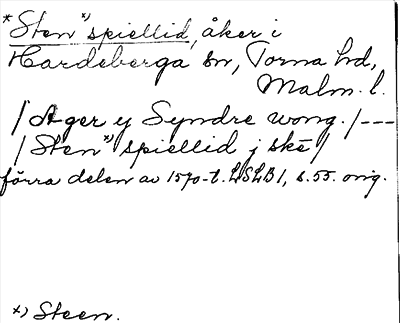 * Sten*) spiellid, åker i
Hardeberga sn, Torna hd,
Malm. l.
/ Ager y Syndre wong. / ---
/ Sten*) spiellid j skē /
förra delen av 1570-t. LSLB 1, s. 55. orig.
*) Steen.